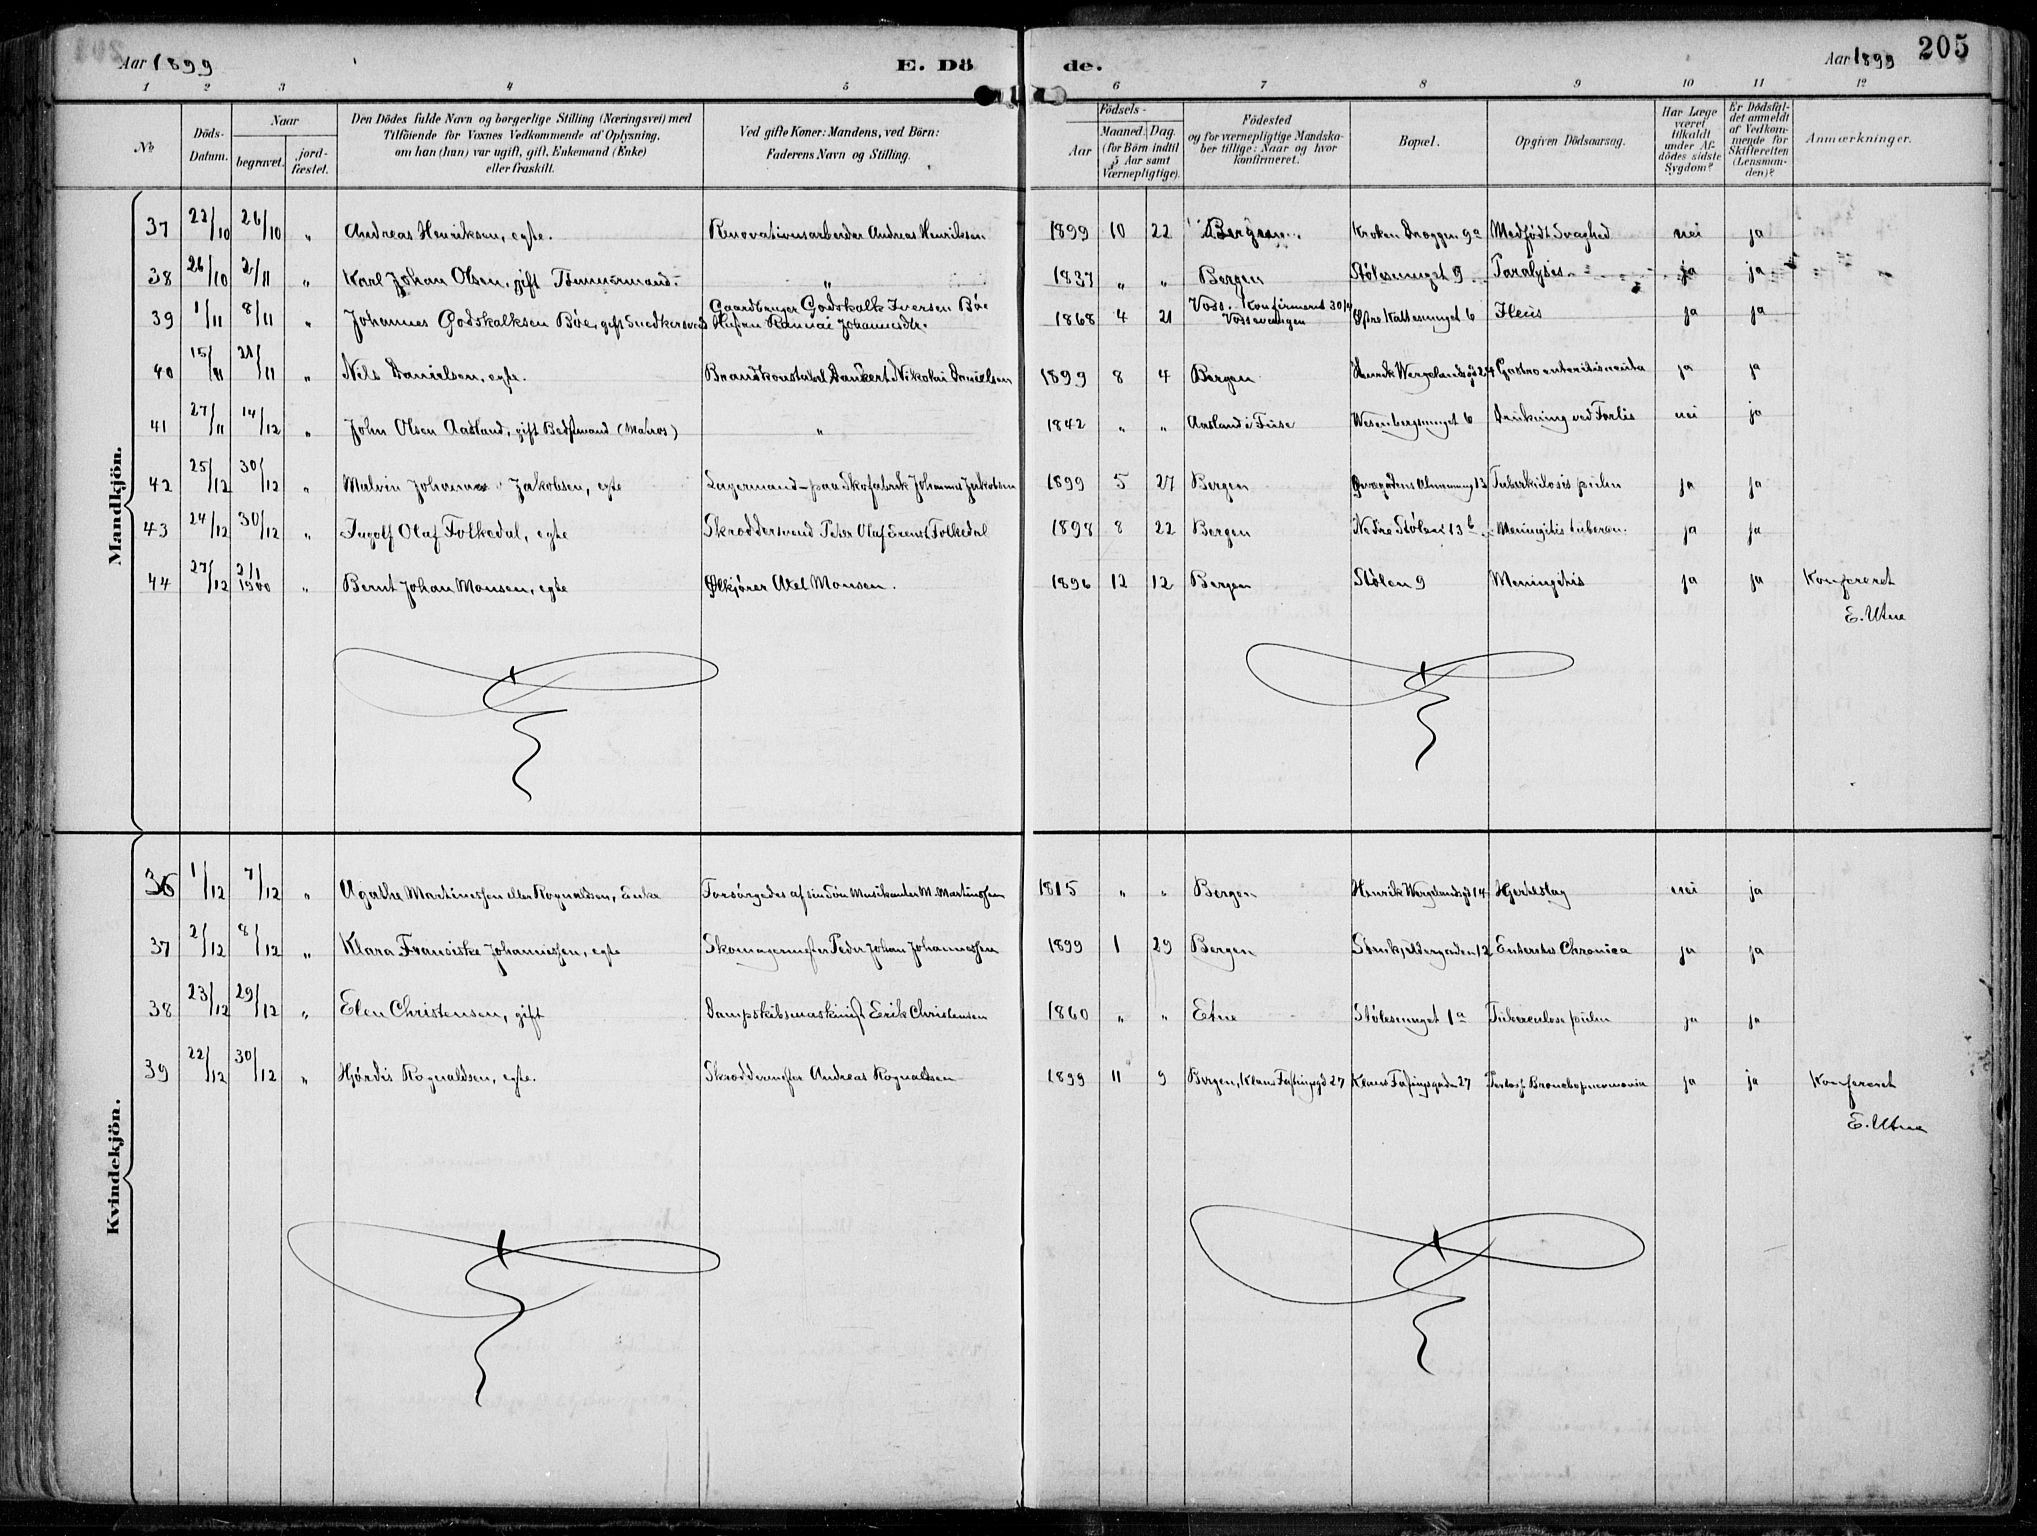 Aar 1899 E. Dö de. Aar 1899 205
1 2 3 4 5 6 7 8 9 10 11 12
№ Döds-Datum. Naar begravet. jord-fæstet. Den Dödes fulde Navn og borgerlige Stilling (Næringsvei) med Tilföiende for Voxnes Vedkommende af Oplysning, om han (hun) var ugift, gift, Enkemand (Enke) eller fraskilt. Ved gifte Koner: Mandens, ved Börn: Faderens Navn og Stilling. Födsels- Aar Maaned. Dag. (for Börn indtil 5 Aar samt Værnepligtige). Födested og for værnepligtige Mandskaber tillige: Naar og hvor konfirmeret. Bopæl. Opgiven Dödsaarsag. Har Læge været tilkaldt under Afdödes sidste Sygdom? Er Dödsfaldet anmeldt af Vedkommende for Skifteretten (Lensmanden)? Anmærkninger.
Mandkjön.
37 22/10 26/10 " Andreas Henriksen, egte. Renovationsarbeider Andreas Henriksen 1899 10 22 Bergen. Kroken Dreggen 9a Medfødt Svaghed nei ja
38 26/10 2/11 " Karl Johan Olsen, gift Tømmermand. " 1837 " " Bergen Stølesmuget 9 Paralysis ja ja
39 1/11 8/11 " Johannes Godskalksen Bøe, gift Snedkersvend Gaardbruger Godskalk Iversen Bøe Hustru Rannai Johannesdtr. 1868 4 21 Voss. Konfirmeret 30/4 Vossevangen Østre Kattesmuget 6 Ileus ja ja
40 15/11 21/11 " Nils Danielsen, egte. Brandkonstabel Dankert Nikolai Danielsen 1899 8 4 Bergen Henrik Wergelandsgd 24 Gastro enteritis acuta ja ja
41 27/11 14/12 " John Olsen Aasland, gift Bedstmand (Matros) " 1842 " " Aasland i Fuse Wesenbergsmuget 6 Drukning ved Forlis nei ja
42 25/12 30/12 " Malvin Johannes Jakobsen, egte Lagermand paa Skofabrik Johannes Jakobsen 1899 5 27 Bergen Øvregadens Almenning 13 Tuberkulosis pulm ja ja
43 24/12 30/12 " Ingolf Olaf Folkedal, egte Skræddersvend Peter Olaf Ernst Folkedal 1898 8 22 Bergen Nedre Stølen 13b Meningitis tubercu. ja ja
44 27/12 2/1 1900 " Bernt Johan Monsen, egte Ølkjører Axel Monsen. 1896 12 12 Bergen Stølen 9 Meningitis ja ja Konfereret
E. Utne
Kvindekjön.
36 1/12 7/12 " Agathe Martinessen eller Rognaldsen, Enke Forsørgedes af sin Søn Musikanter M. Martinessen 1815 " " Bergen Henrik Wergelandsgd 14 Hjerteslag nei ja
37 2/12 8/12 " Klara Fransiske Johannessen, egte Skomagermester Peder Johan Johannessen 1899 1 29 Bergen Stenkjeldergaden 12 Enteritis Chronica ja ja
38 23/12 29/12 " Elen Christensen, gift Dampskibsmaskinist Erik Christensen 1860 " " Etne Stølesmuget 1a Tuberculose pulm ja ja
39 22/12 30/12 " Hjørdis Rognaldsen, egte. Skræddermester Andreas Rognaldsen 1899 11 9 Bergen, Klaus Fastingsgd 27 Klaus Fastingsgaden 27 Bronchopneumonia ja ja Konfereret
E. Utne